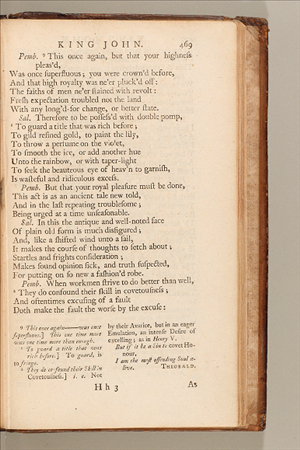 KING JOHN. 469
Pemb. ⁹ This once again, but that your highneſs
pleas'd,
Was once ſuperfluous; you were crown'd before,
And that high royalty was ne'er pluck'd off:
The faiths of men ne'er ſtained with revolt:
Freſh expectation troubled not the land
With any long'd-for change, or better ſtate.
Sal. Therefore to be poſſeſs'd with double pomp,
¹ To guard a title that was rich before;
To gild refined gold, to paint the lilly,
To throw a perfume on the violet,
To ſmooth the ice, or add another hue
Unto the rainbow, or with taper-light
To ſeek the beauteous eye of heav'n to garniſh,
Is waſteful and ridiculous exceſs.
Pemb. But that your royal pleaſure muſt be done,
This act is as an ancient tale new told,
And in the laſt repeating troubleſome;
Being urged at a time unſeaſonable.
Sal. In this the antique and well-noted face
Of plain old form is much disfigured;
And, like a ſhifted wind unto a ſail,
It makes the courſe of thoughts to fetch about;
Startles and frights conſideration;
Makes ſound opinion ſick, and truth ſuſpected,
For putting on ſo new a faſhion'd robe.
Pemb. When workmen ſtrive to do better than well,
² They do confound their ſkill in covetouſneſs;
And oftentimes excuſing of a fault
Doth make the fault the worſe by the excuſe:
⁹ This once again——was once
ſuperfluous.] This one time more
was one time more than enough.
¹ To guard a title that was
rich before.] To guard, is
to fringe.
² They do confound their Skill in
Covetouſneſs.] i. e. Not
by their Avarice, but in an eager
Emulation, an intenſe Deſire of
excelling; as in Henry V.
But if it be a ſin to covet Ho-
nour,
I am the moſt offending Soul a-
live. THEOBALD.
H h 3 As